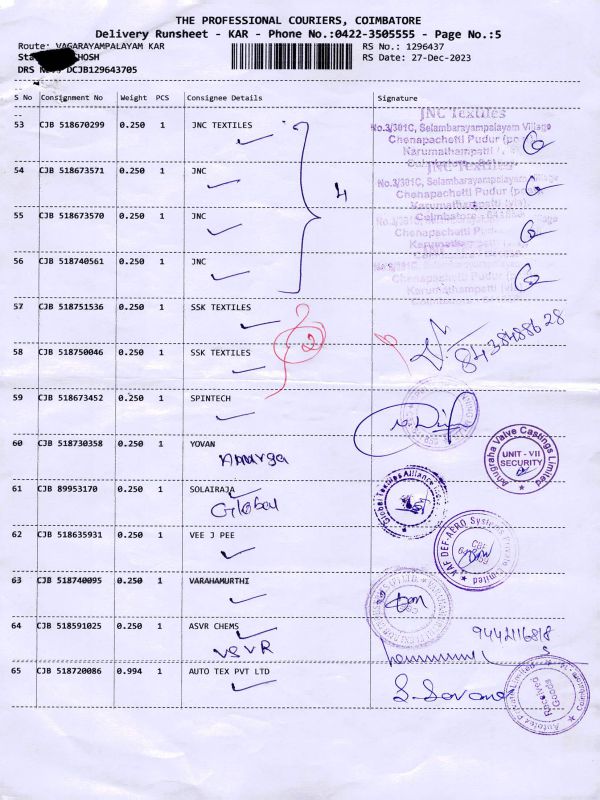 THE PROFESSIONAL COURIERS, COIMBATORE
Delivery Runsheet - KAR - Phone No.:0422-3505555 - Page No.:5
Route: VAGARAYAMPALAYAM KAR RS No.: 1296437
RS Date: 27-Dec-2023
DCJB129643705
S No Consignment No Weight PCS Consignee Details Signature
53 CJB 518670299 0.250 1 JNC TEXTILES
JNC Textiles
No.3/301C, Selambarayampalayam Village
Chenapachetti Pudur
Karumathampatti
54 CJB 518673571 0.250 1 JNC
4
JNC Textiles
No.3/301C, Selambarayampalayam Village
Chenapachetti Pudur
Karumathampatti (via),
55 CJB 518673570 0.250 1 JNC
Coimbatore
Chenapachetti Pudur
Karumathampatti
56 CJB 518740561 0.250 1 JNC
Chenapachetti Pudur
Karumathampatti (via),
57 CJB 518751536 0.250 1 SSK TEXTILES
2
8438488628
58 CJB 518750046 0.250 1 SSK TEXTILES
59 CJB 518673452 0.250 1 SPINTECH
60 CJB 518730358 0.250 1 YOVAN
Anugraha Valve Castings Limited
UNIT - VII
SECURITY
61 CJB 89953170 0.250 1 SOLAIRAJA
Global
Global Textiles Alliance
62 CJB 518635931 0.250 1 VEE J PEE
VAF DEF.AERO Systems Private Limited
63 CJB 518740095 0.250 1 VARAHAMURTHI
64 CJB 518591025 0.250 1 ASVR CHEMS
VSVR
9442116818
65 CJB 518720086 0.994 1 AUTO TEX PVT LTD
Received
Goods